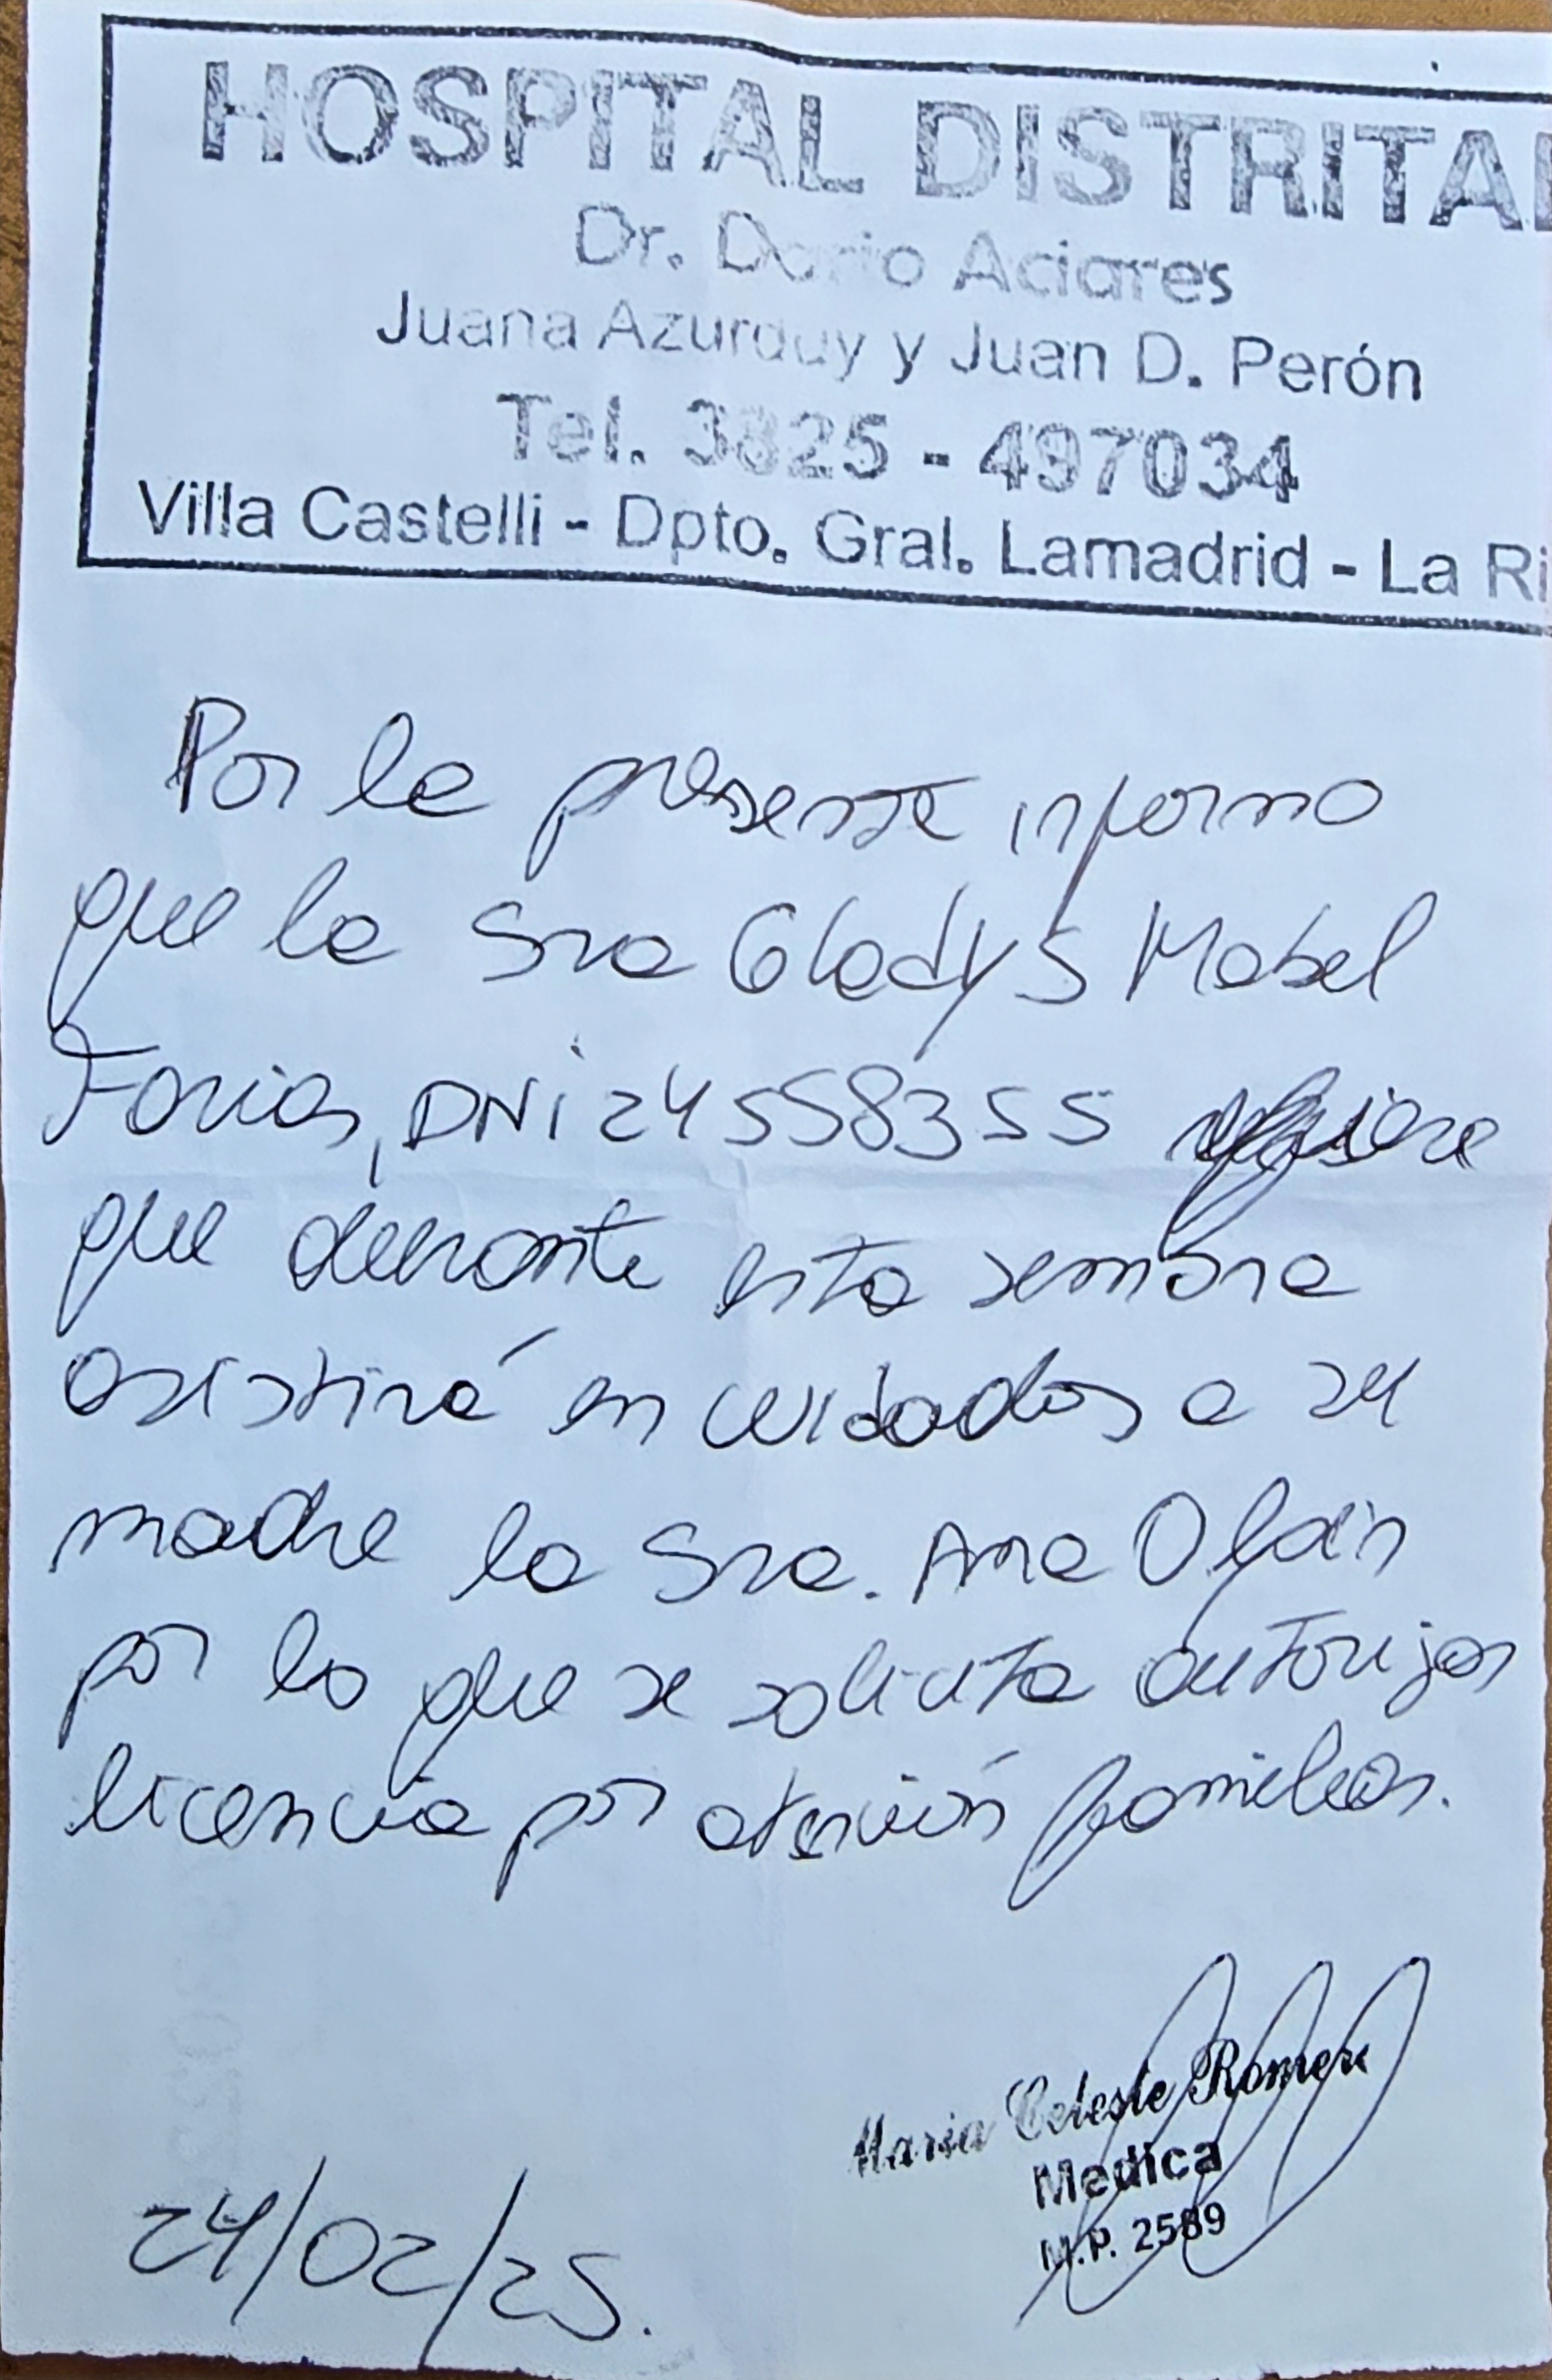 HOSPITAL DISTRITAL
Dr. Dario Aciares
Juana Azurduy y Juan D. Perón
Tel. 3825 - 497034
Villa Castelli - Dpto. Gral. Lamadrid - La Ri
Por la presente informo
que la Sra Gladys Mabel
Farias, DNi 24558355
que durante esta semana
asistirá en cuidados a su
madre la Sra. Ana Olfáis
por lo que se solicita autorizar
licencia por atención familiar.
Maria Celeste Romero
Medica
M.P. 2589
24/02/25.